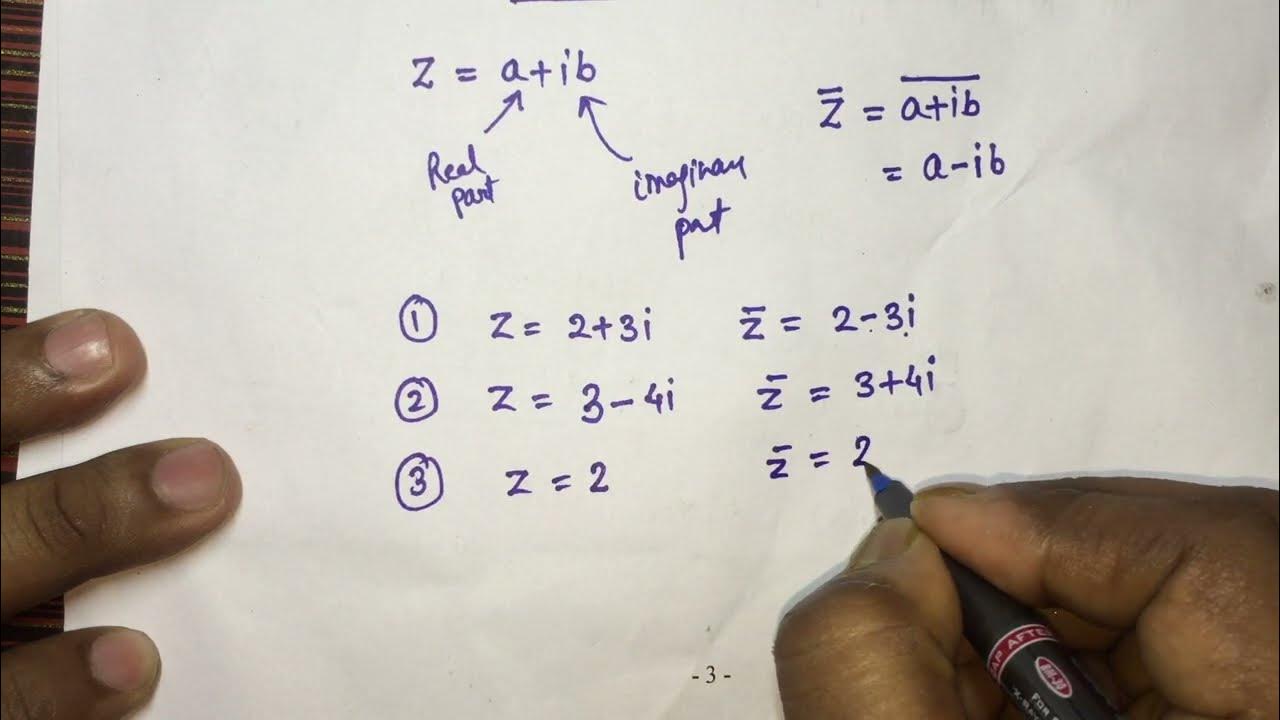 z = a+ib
Real part
imaginary part
z̅ = a̅+̅i̅b̅
= a-ib
① z = 2+3i z̅ = 2-3i
② z = 3-4i z̅ = 3+4i
③ z = 2 z̅ = 2
- 3 -